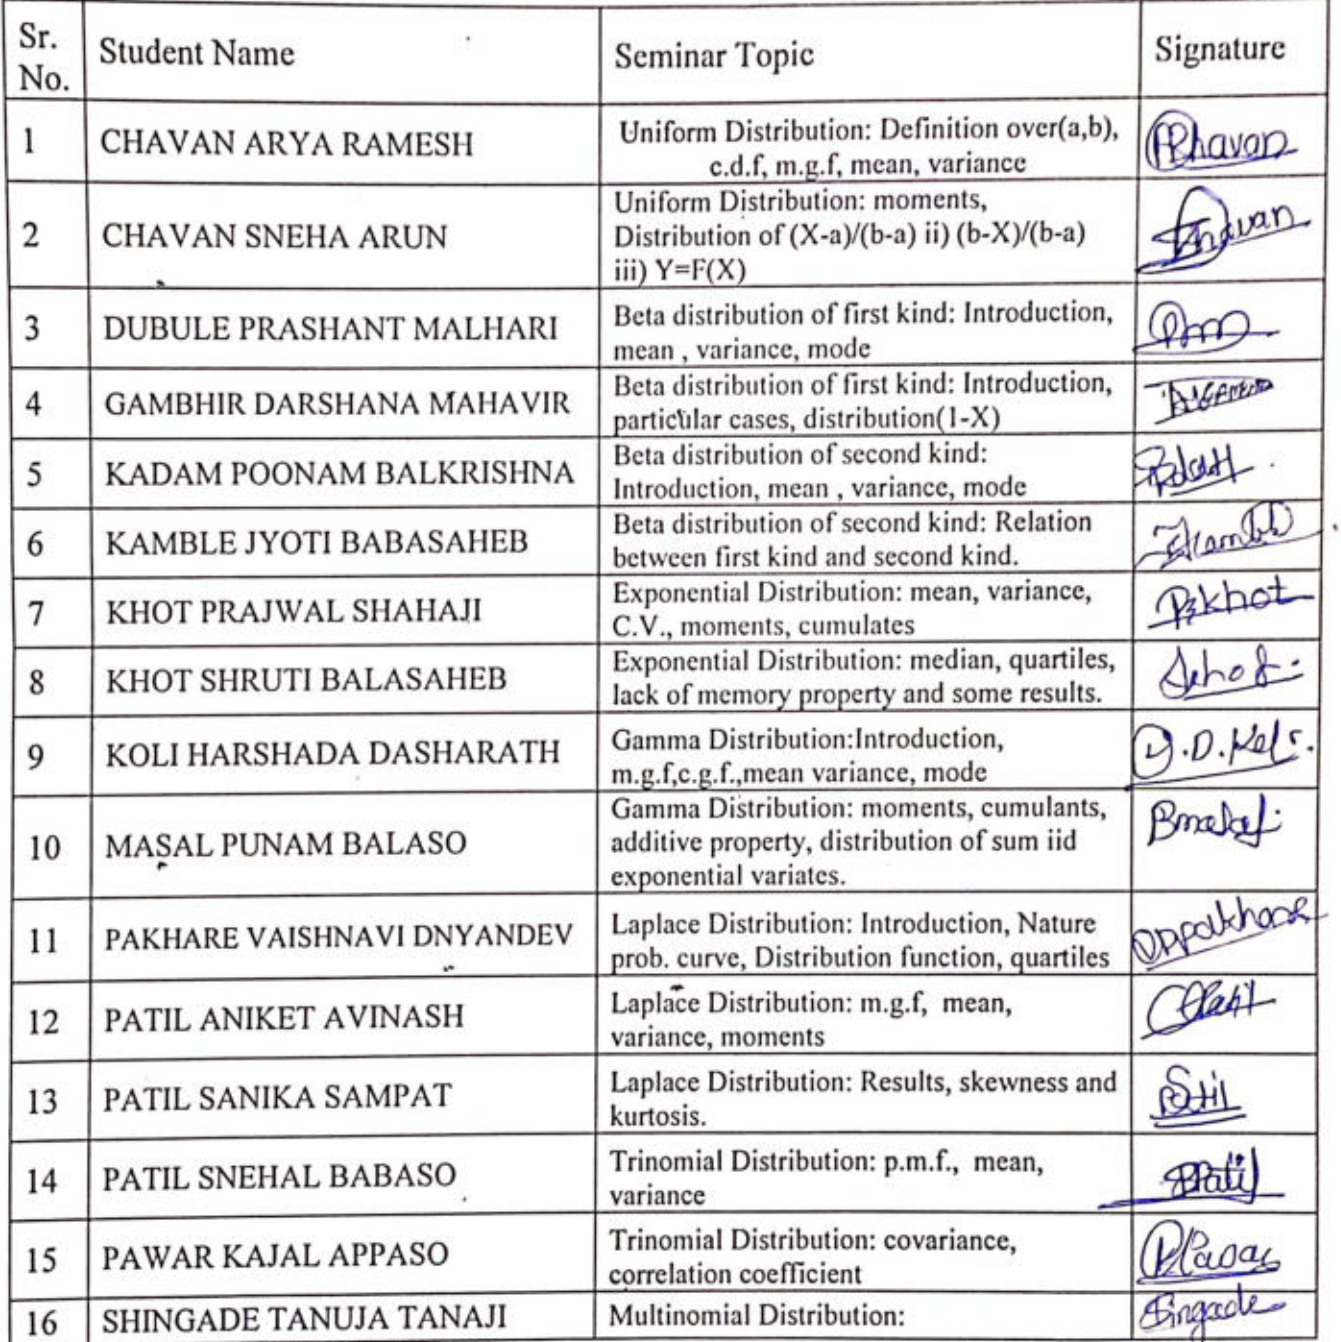 Sr. No. Student Name Seminar Topic Signature
1 CHAVAN ARYA RAMESH Uniform Distribution: Definition over(a,b),
c.d.f, m.g.f, mean, variance
2 CHAVAN SNEHA ARUN Uniform Distribution: moments,
Distribution of (X-a)/(b-a) ii) (b-X)/(b-a)
iii) Y=F(X)
Chavan
3 DUBULE PRASHANT MALHARI Beta distribution of first kind: Introduction,
mean , variance, mode
4 GAMBHIR DARSHANA MAHAVIR Beta distribution of first kind: Introduction,
particular cases, distribution(1-X)
5 KADAM POONAM BALKRISHNA Beta distribution of second kind:
Introduction, mean , variance, mode
6 KAMBLE JYOTI BABASAHEB Beta distribution of second kind: Relation
between first kind and second kind.
7 KHOT PRAJWAL SHAHAJI Exponential Distribution: mean, variance,
C.V., moments, cumulates
Pskhot
8 KHOT SHRUTI BALASAHEB Exponential Distribution: median, quartiles,
lack of memory property and some results.
9 KOLI HARSHADA DASHARATH Gamma Distribution:Introduction,
m.g.f,c.g.f.,mean variance, mode
10 MASAL PUNAM BALASO Gamma Distribution: moments, cumulants,
additive property, distribution of sum iid
exponential variates.
11 PAKHARE VAISHNAVI DNYANDEV Laplace Distribution: Introduction, Nature
prob. curve, Distribution function, quartiles
12 PATIL ANIKET AVINASH Laplace Distribution: m.g.f, mean,
variance, moments
13 PATIL SANIKA SAMPAT Laplace Distribution: Results, skewness and
kurtosis.
14 PATIL SNEHAL BABASO Trinomial Distribution: p.m.f., mean,
variance
15 PAWAR KAJAL APPASO Trinomial Distribution: covariance,
correlation coefficient
16 SHINGADE TANUJA TANAJI Multinomial Distribution: Singade